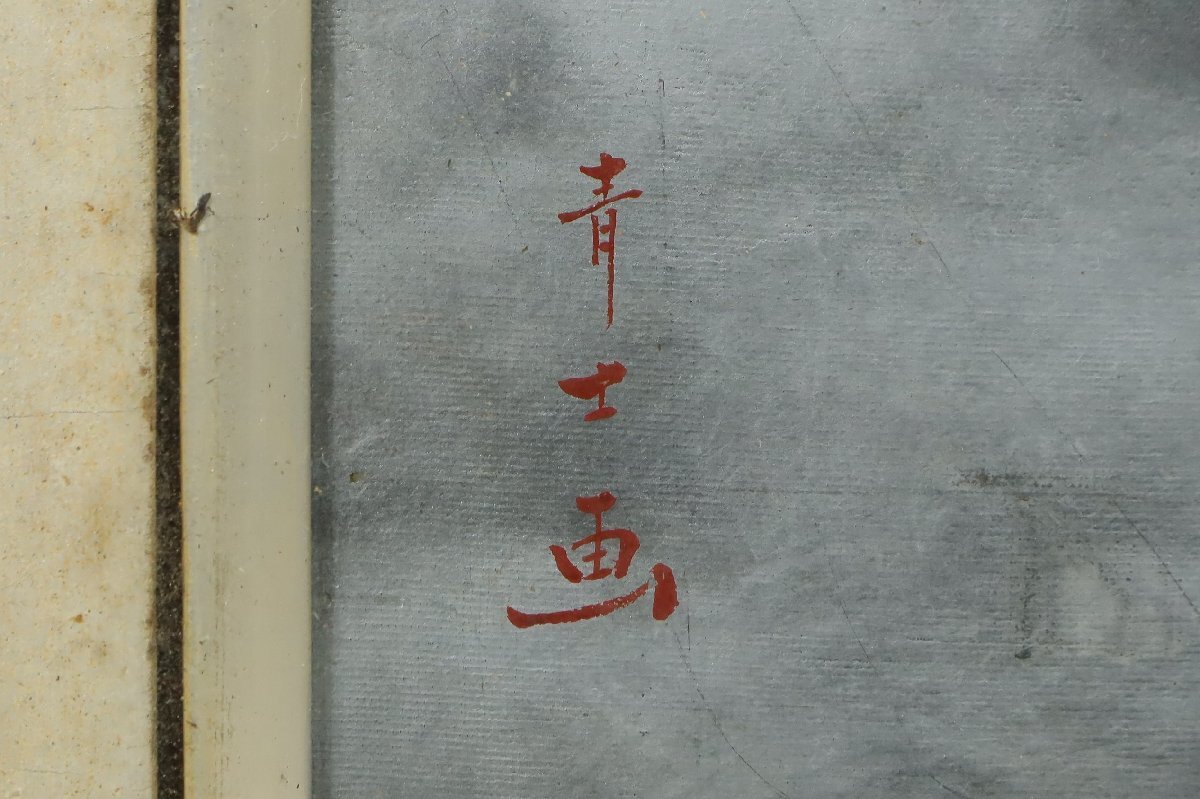 青士画